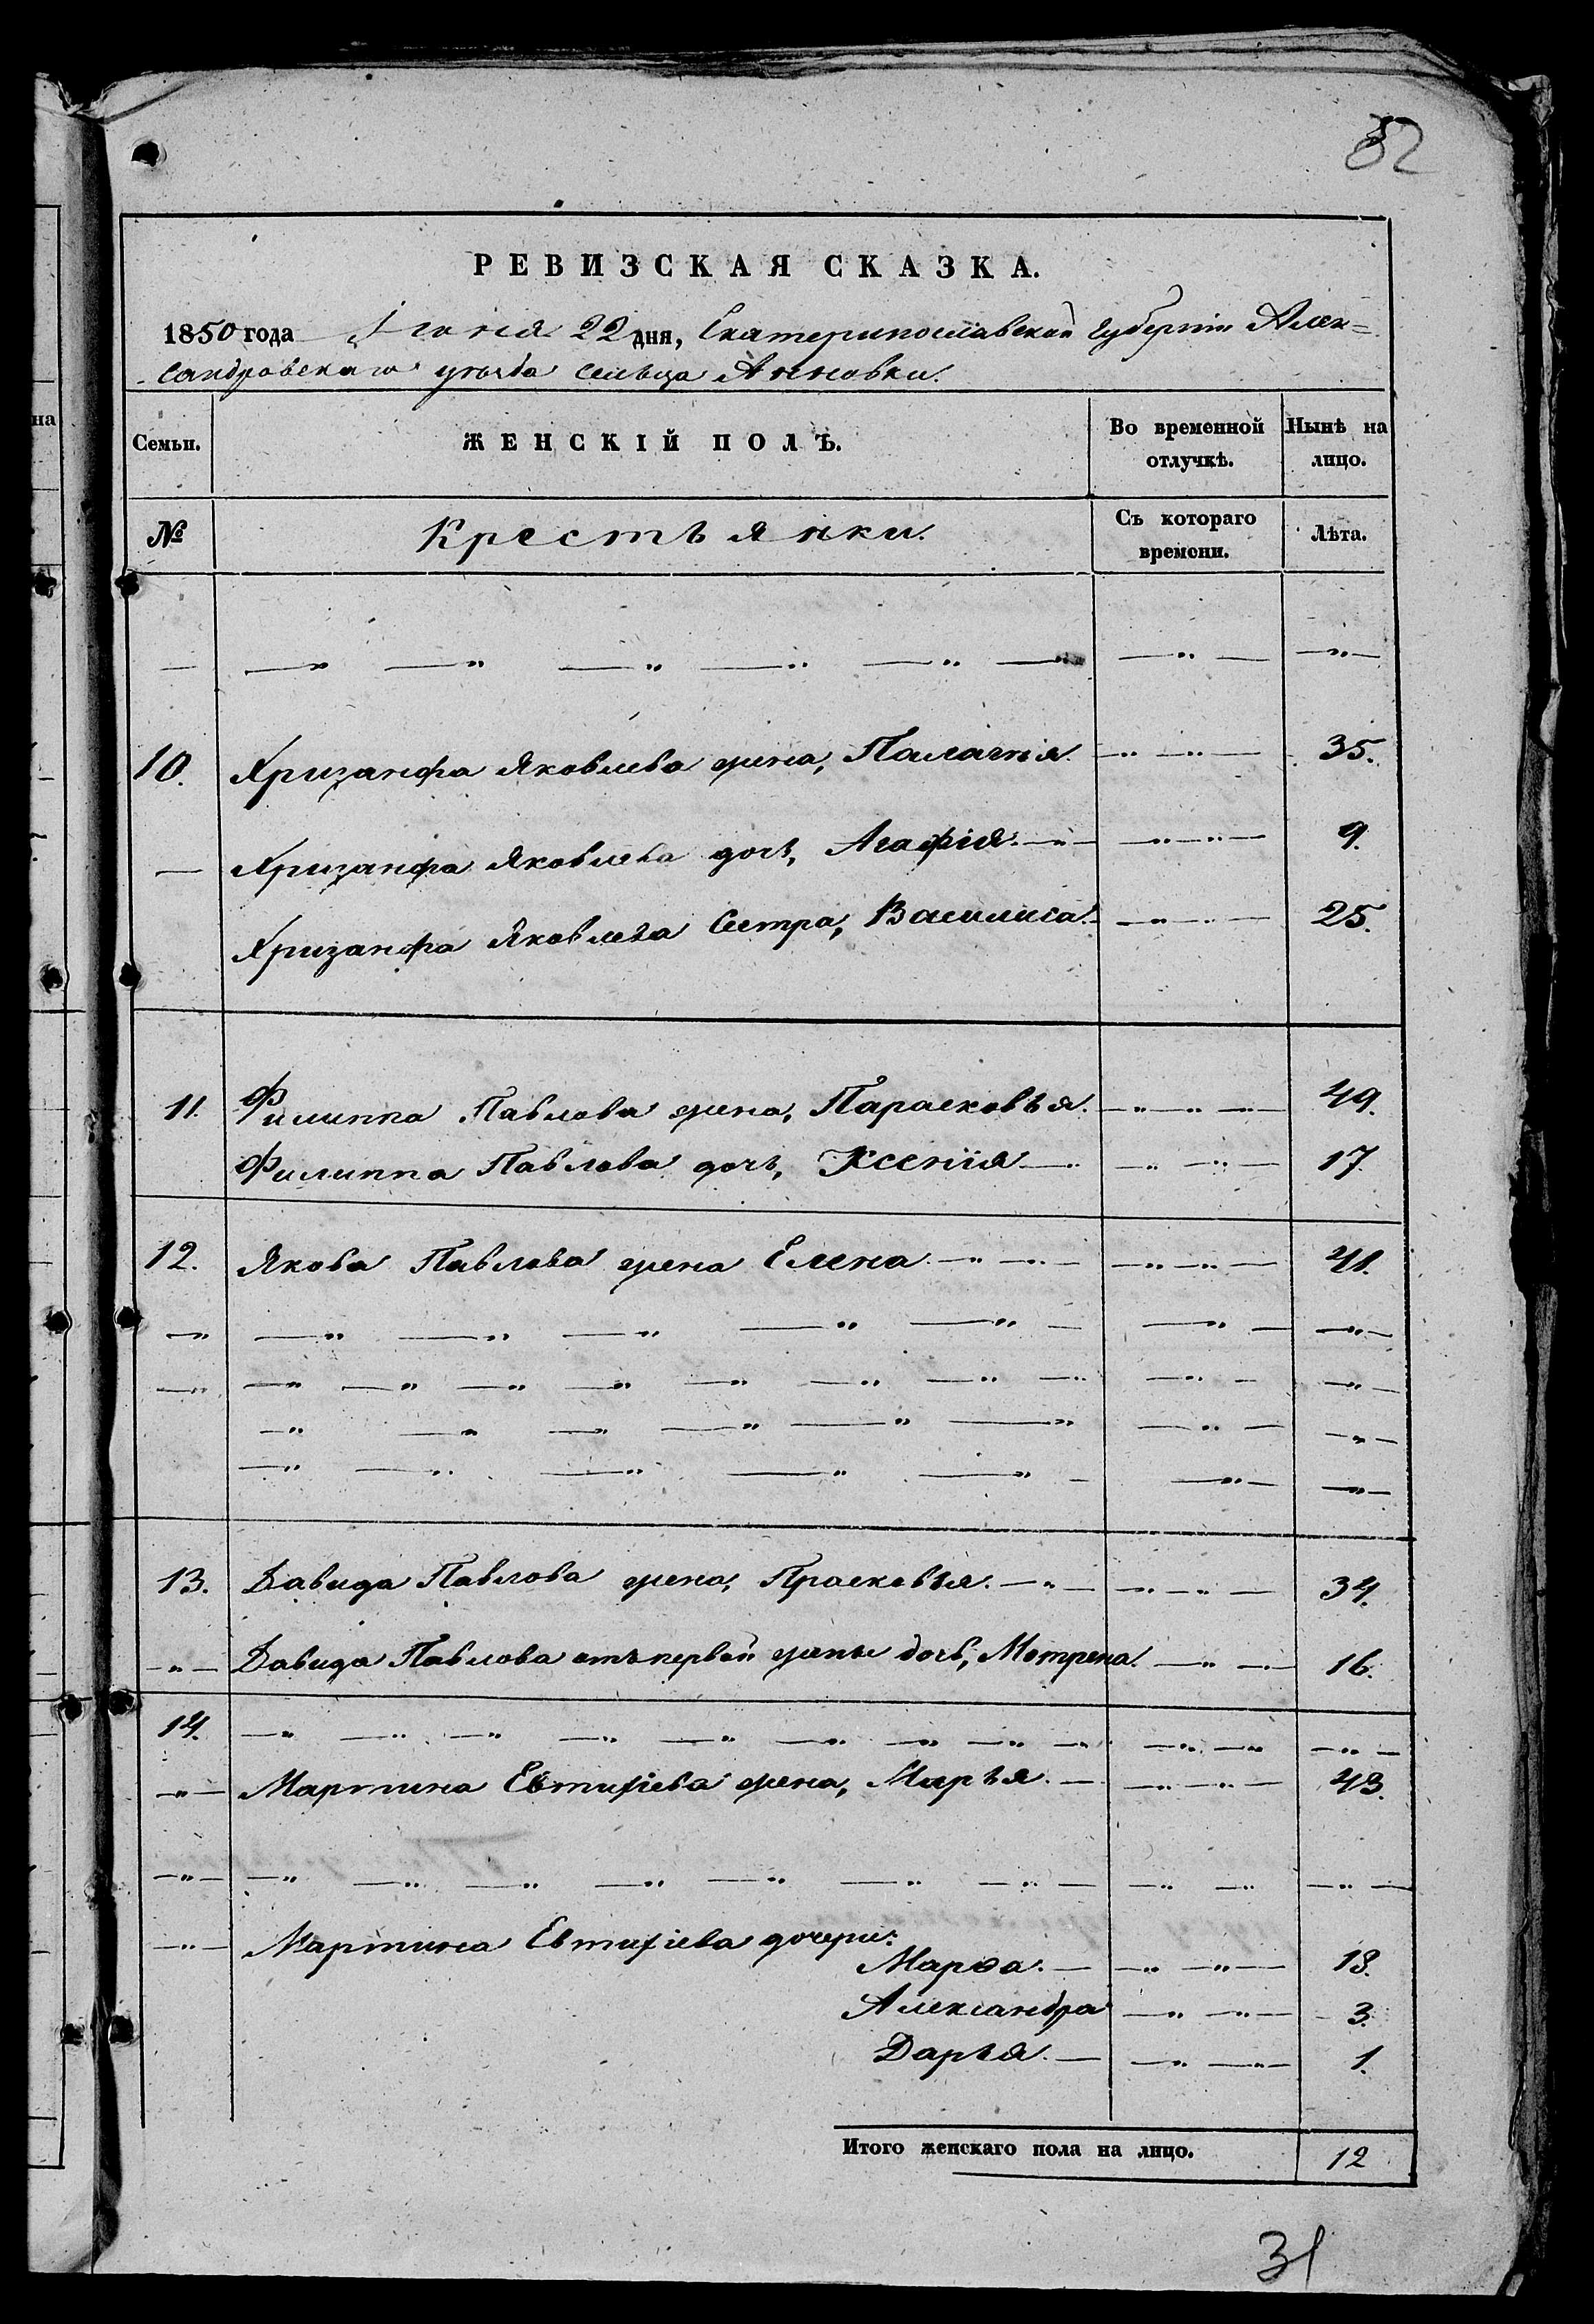 82
РЕВИЗСКАЯ СКАЗКА.
1850 года Іюня 22 дня, Екатеринославской губерніи Алек=
сандровскаго уѣзда сельца Анновки.
на
Семьи.
ЖЕНСКІЙ ПОЛЪ.
Во временной отлучкѣ.
Нынѣ на лицо.
№
Крестьянки.
Съ котораго времени.
Лѣта.
10. Хризанфа Яковлева жена, Палагія. 35.
Хризанфа Яковлева дочь, Агафія. 9.
Хризанфа Яковлева Сестра, Василиса. 25.
11. Филиппа Павлова жена, Парасковья. 49.
Филиппа Павлова дочь, Ксенія 17.
12. Якова Павлова жена Елена 41.
13. Давида Павлова жена, Прасковья. 34.
Давида Павлова отъ первой жены дочь, Мотрена. 16.
14.
Мартина Евтихіева жена, Марья. 43.
Мартина Евтихіева дочери:
Марѳа. 18.
Александра 3.
Дарья. 1.
Итого женскаго пола на лицо. 12
31